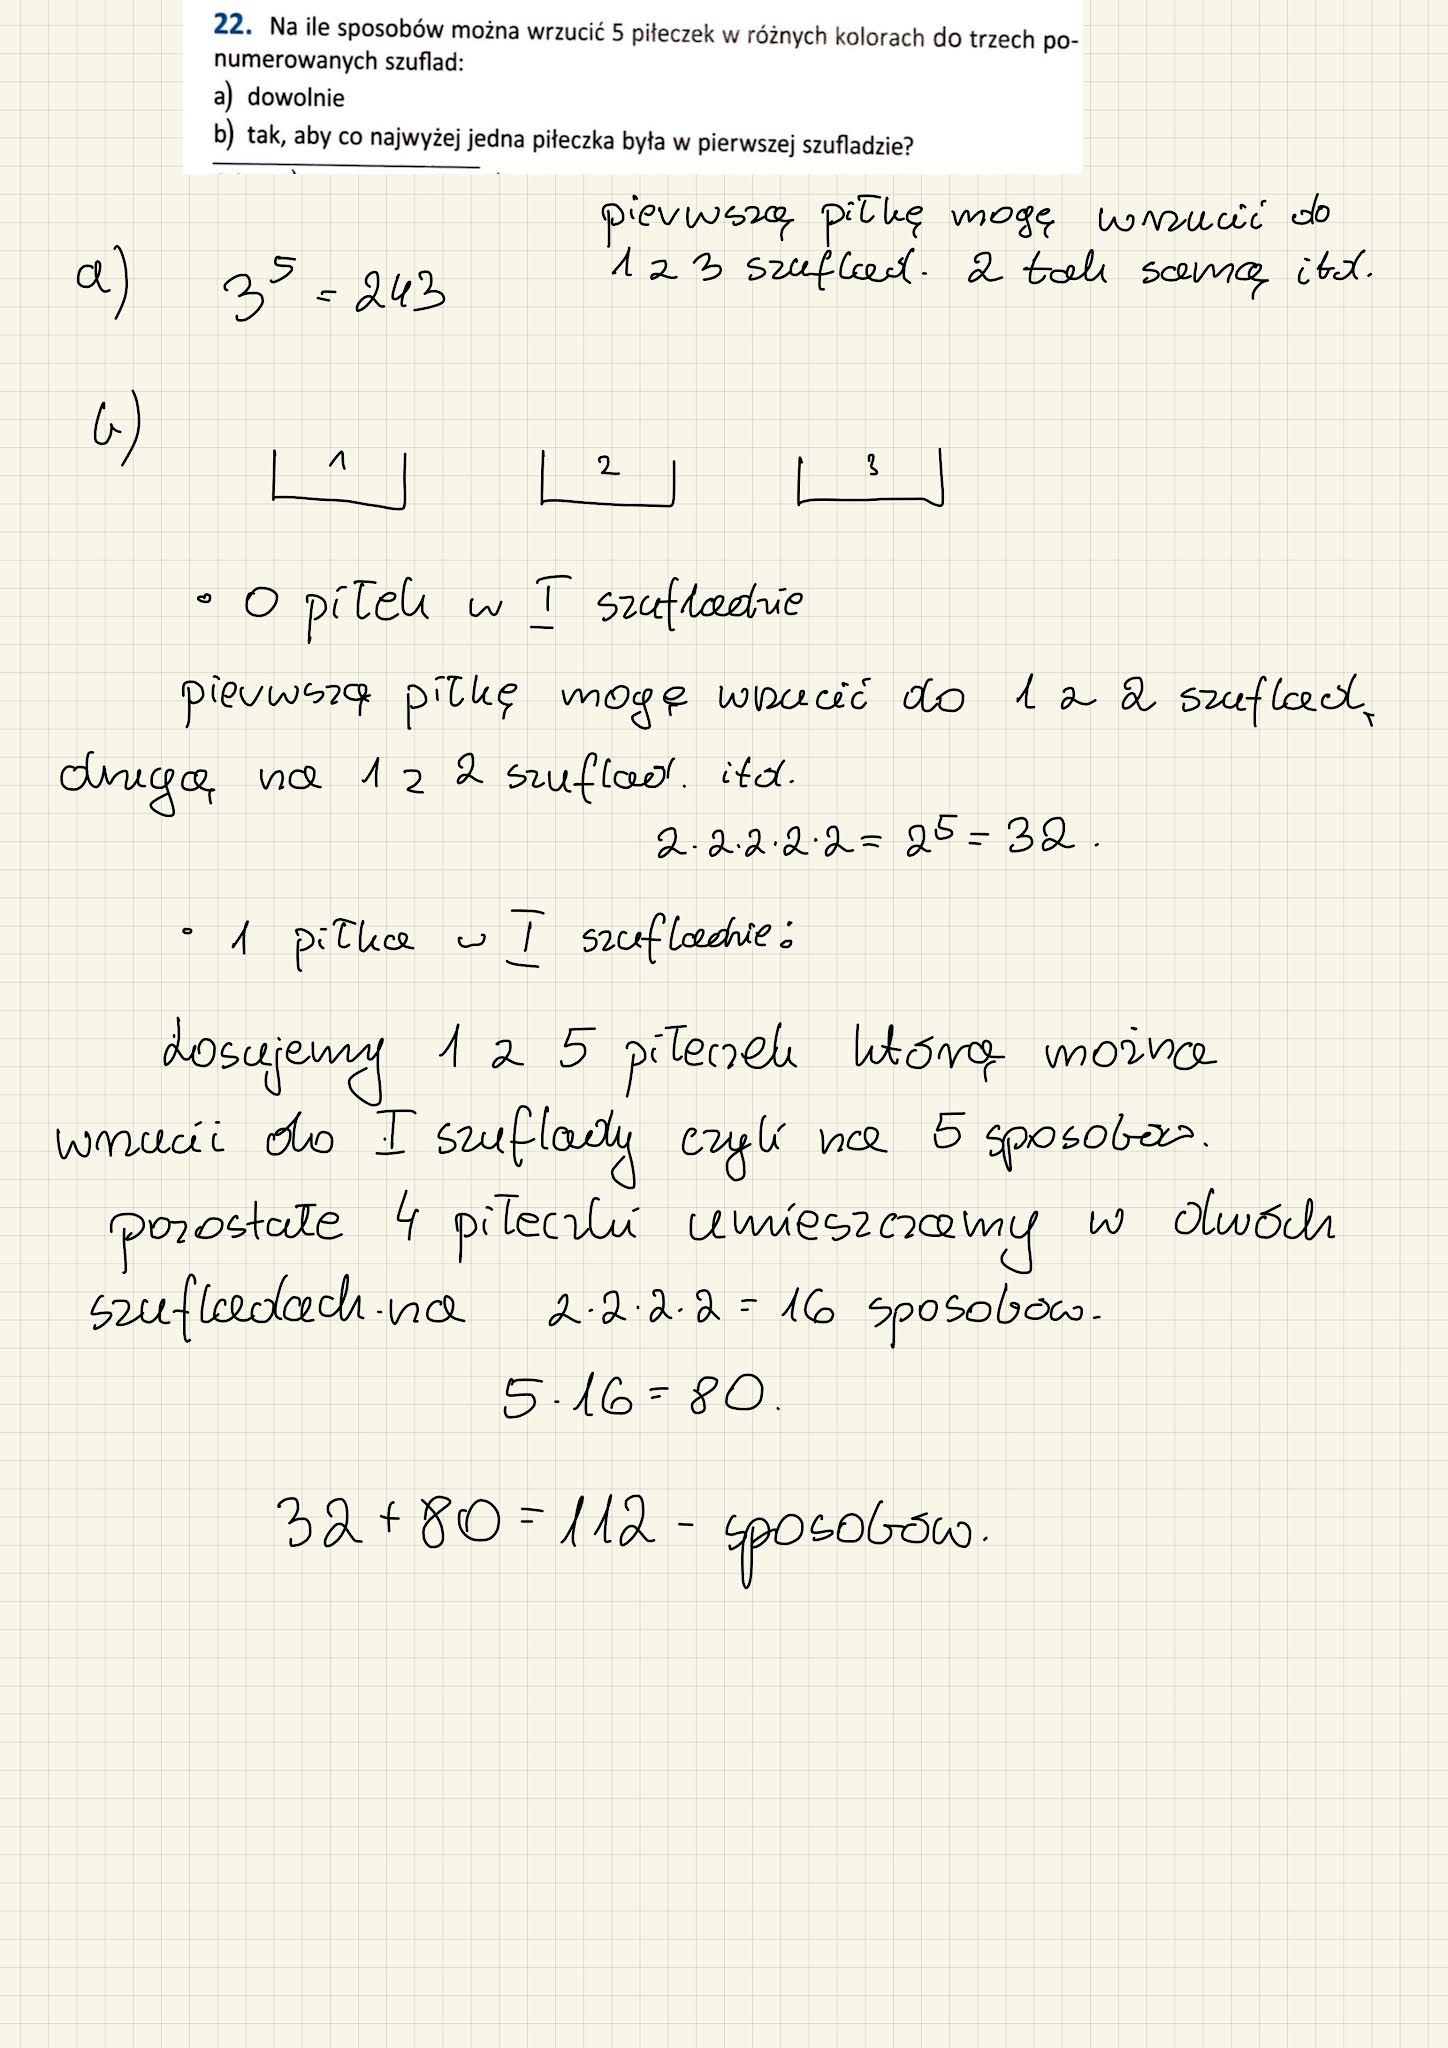 22. Na ile sposobów można wrzucić 5 piłeczek w różnych kolorach do trzech po-
numerowanych szuflad:
a) dowolnie
b) tak, aby co najwyżej jedna piłeczka była w pierwszej szufladzie?
pierwszą piłkę mogę wrzucić do
1 z 3 szuflad. 2 tak samą itd.
a) 3⁵ = 243
b)
1 2 3
• 0 piłek w I szufladzie
pierwszą piłkę mogę wrzucić do 1 z 2 szuflad,
drugą na 1 z 2 szuflad. itd.
2·2·2·2·2 = 2⁵ = 32.
• 1 piłka w I szufladzie:
Losujemy 1 z 5 piłeczek którą można
wrzucić do I szuflady czyli na 5 sposobów.
pozostałe 4 piłeczki umieszczamy w dwóch
szufladach na 2·2·2·2 = 16 sposobów.
5·16 = 80.
32 + 80 = 112 - sposobów.